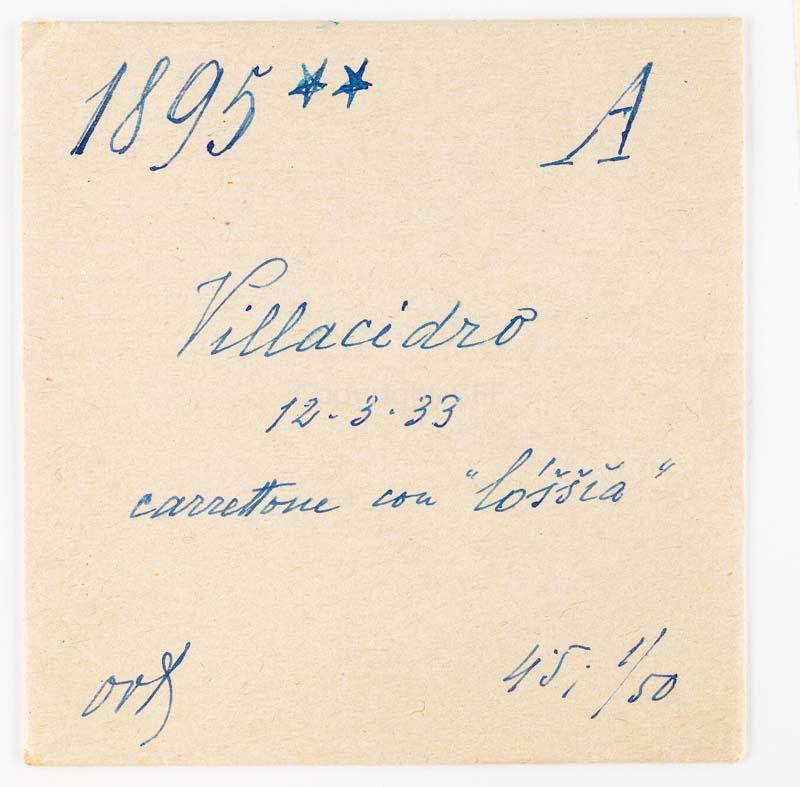 1895 ** A
Villacidro
12-3-33
carrettone con "lóššĭa"
45; 1/50